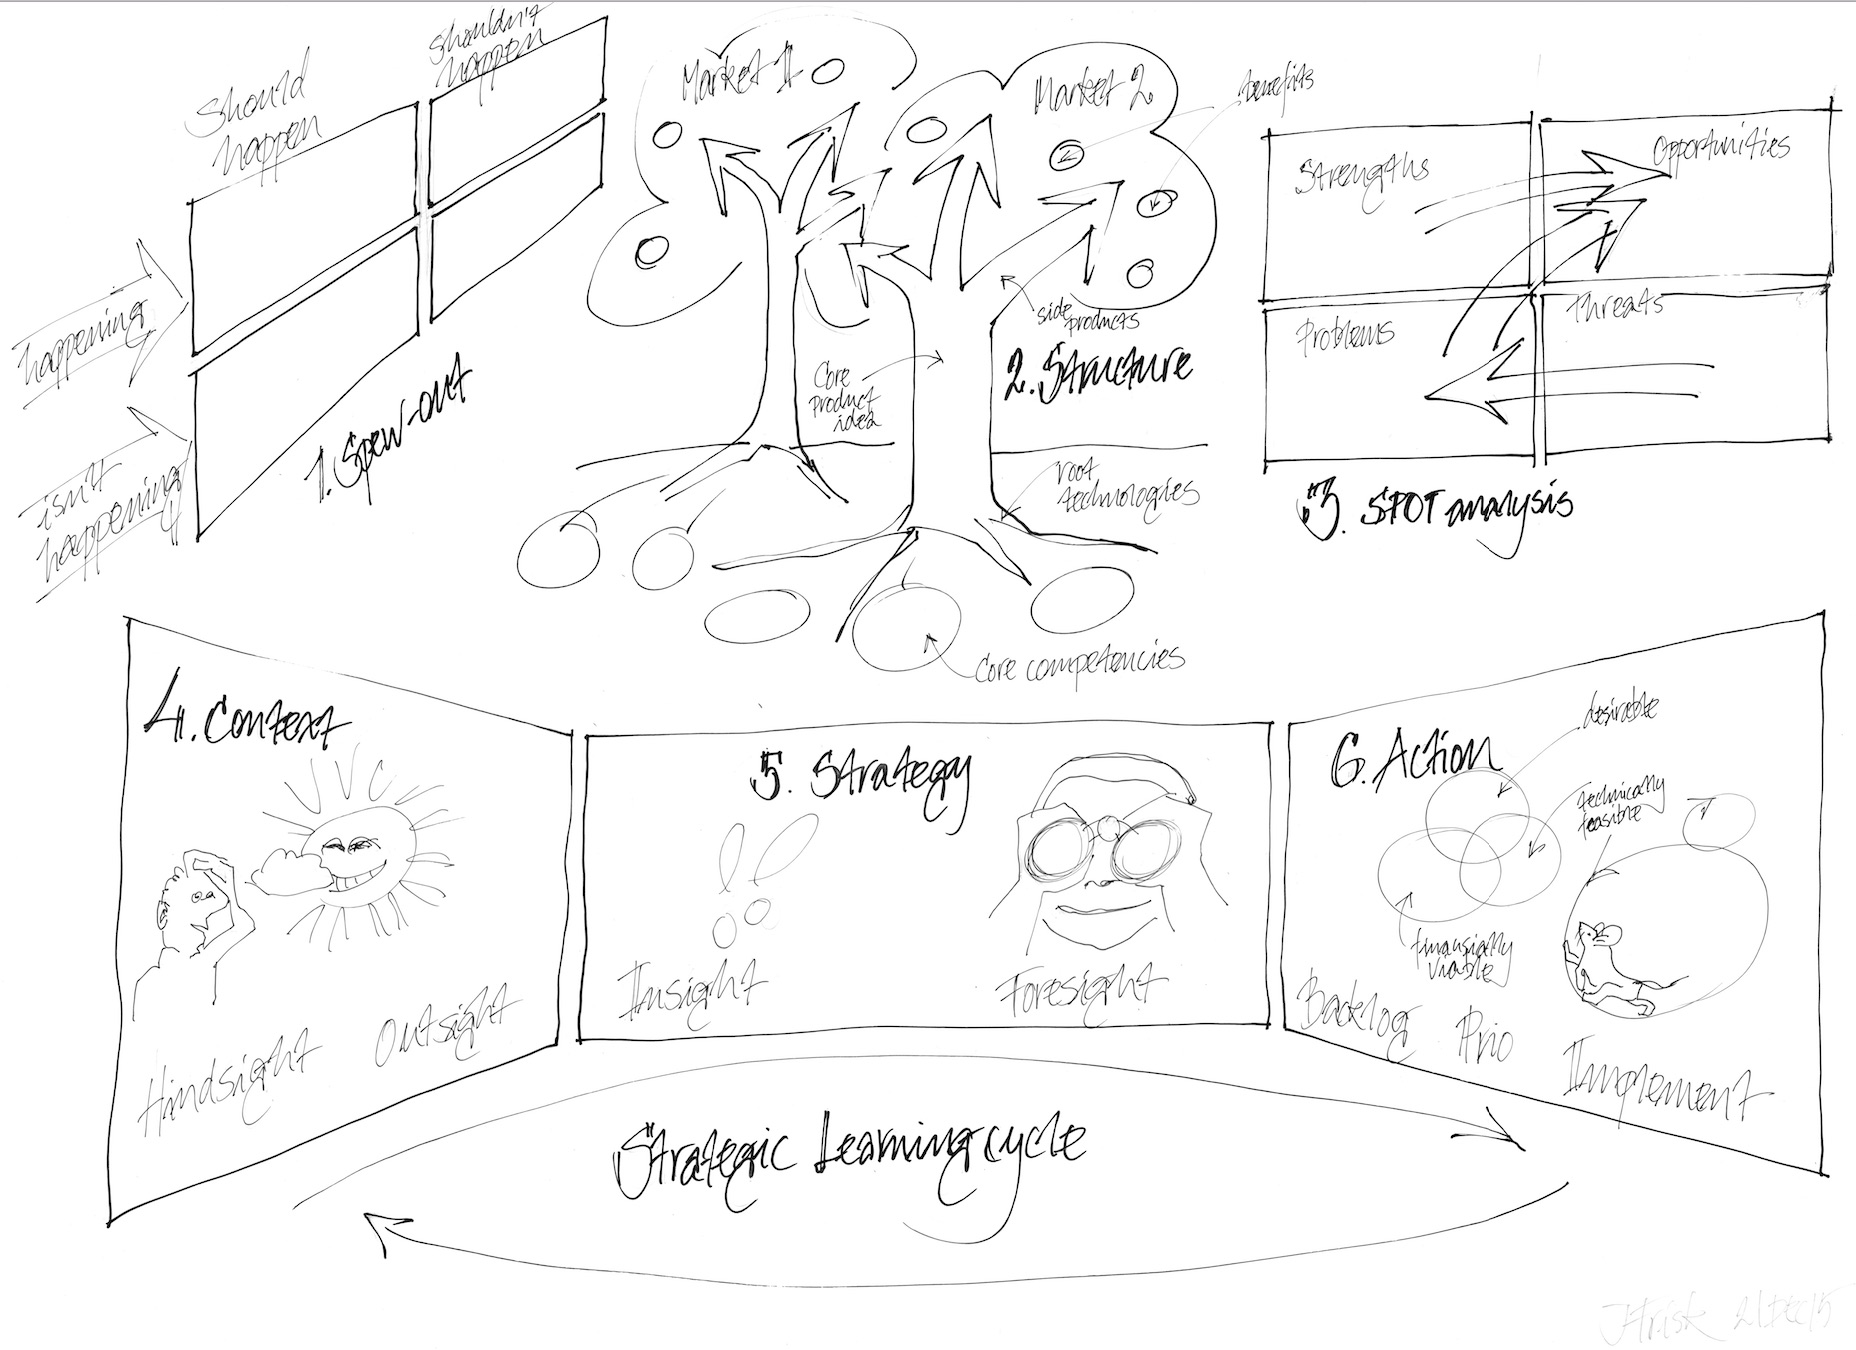 Should
happen
Shouldn't
happen
happening
isn't
happening
1. Spew-out
Market 1
Market 2
benefits
side
products
Core
product
idea
2. Structure
root
technologies
Core competencies
Strengths
Opportunities
Problems
Threats
3. SPOT analysis
4. Context
Hindsight
Outsight
5. Strategy
Insight
Foresight
6. Action
desirable
technically
feasible
finansially
viable
Backlog
Prio
Implement
Strategic Learning cycle
21Dec15